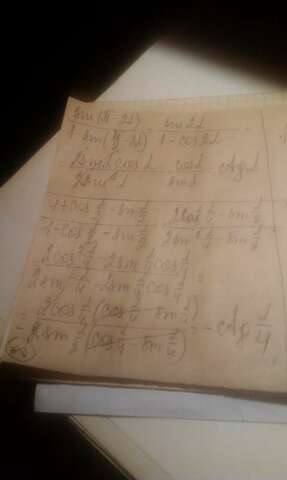 sin(π-2α) / 1-sin(π/2-2α) = sin2α / 1-cos2α =
= 2sinα cosα / 2sin²α = cosα / sinα = ctgα
1+cos α/2 - sin α/2 / 1-cos α/2 - sin α/2 = 2cos² α/4 - sin α/2 / 2sin² α/4 - sin α/2 =
= 2cos² α/4 - 2sin α/4 cos α/4 / 2sin² α/4 - 2sin α/4 cos α/4 =
= 2cos α/4 (cos α/4 - sin α/4) / -2sin α/4 (cos α/4 - sin α/4) = -ctg α/4